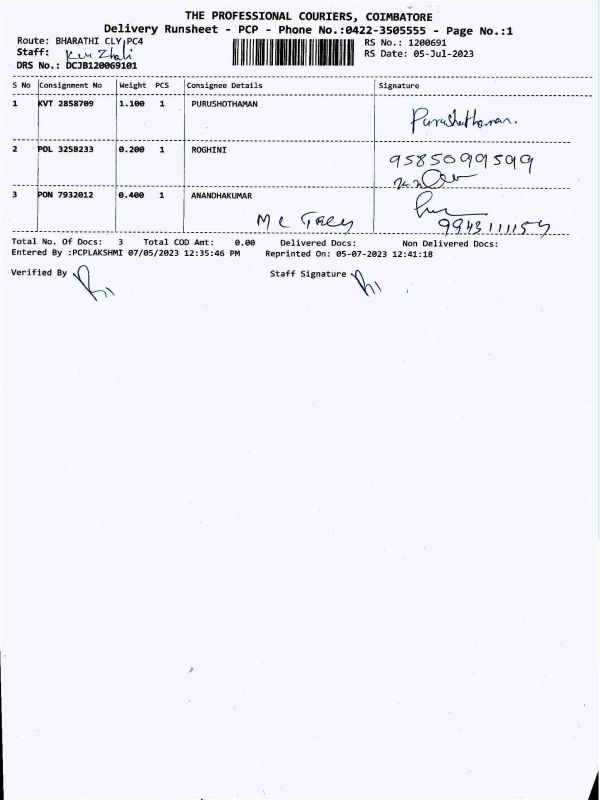 THE PROFESSIONAL COURIERS, COIMBATORE
Delivery Runsheet - PCP - Phone No.:0422-3505555 - Page No.:1
Route: BHARATHI CLY,PC4
RS No.: 1200691
Staff:
RS Date: 05-Jul-2023
DRS No.: DCJB120069101
S No Consignment No Weight PCS Consignee Details Signature
1 KVT 2858709 1.100 1 PURUSHOTHAMAN
Purushothaman.
2 POL 3258233 0.200 1 ROGHINI
9585099599
3 PON 7932012 0.400 1 ANANDHAKUMAR
9943111154
Total No. Of Docs: 3 Total COD Amt: 0.00 Delivered Docs: Non Delivered Docs:
Entered By :PCPLAKSHMI 07/05/2023 12:35:46 PM Reprinted On: 05-07-2023 12:41:18
Verified By Staff Signature